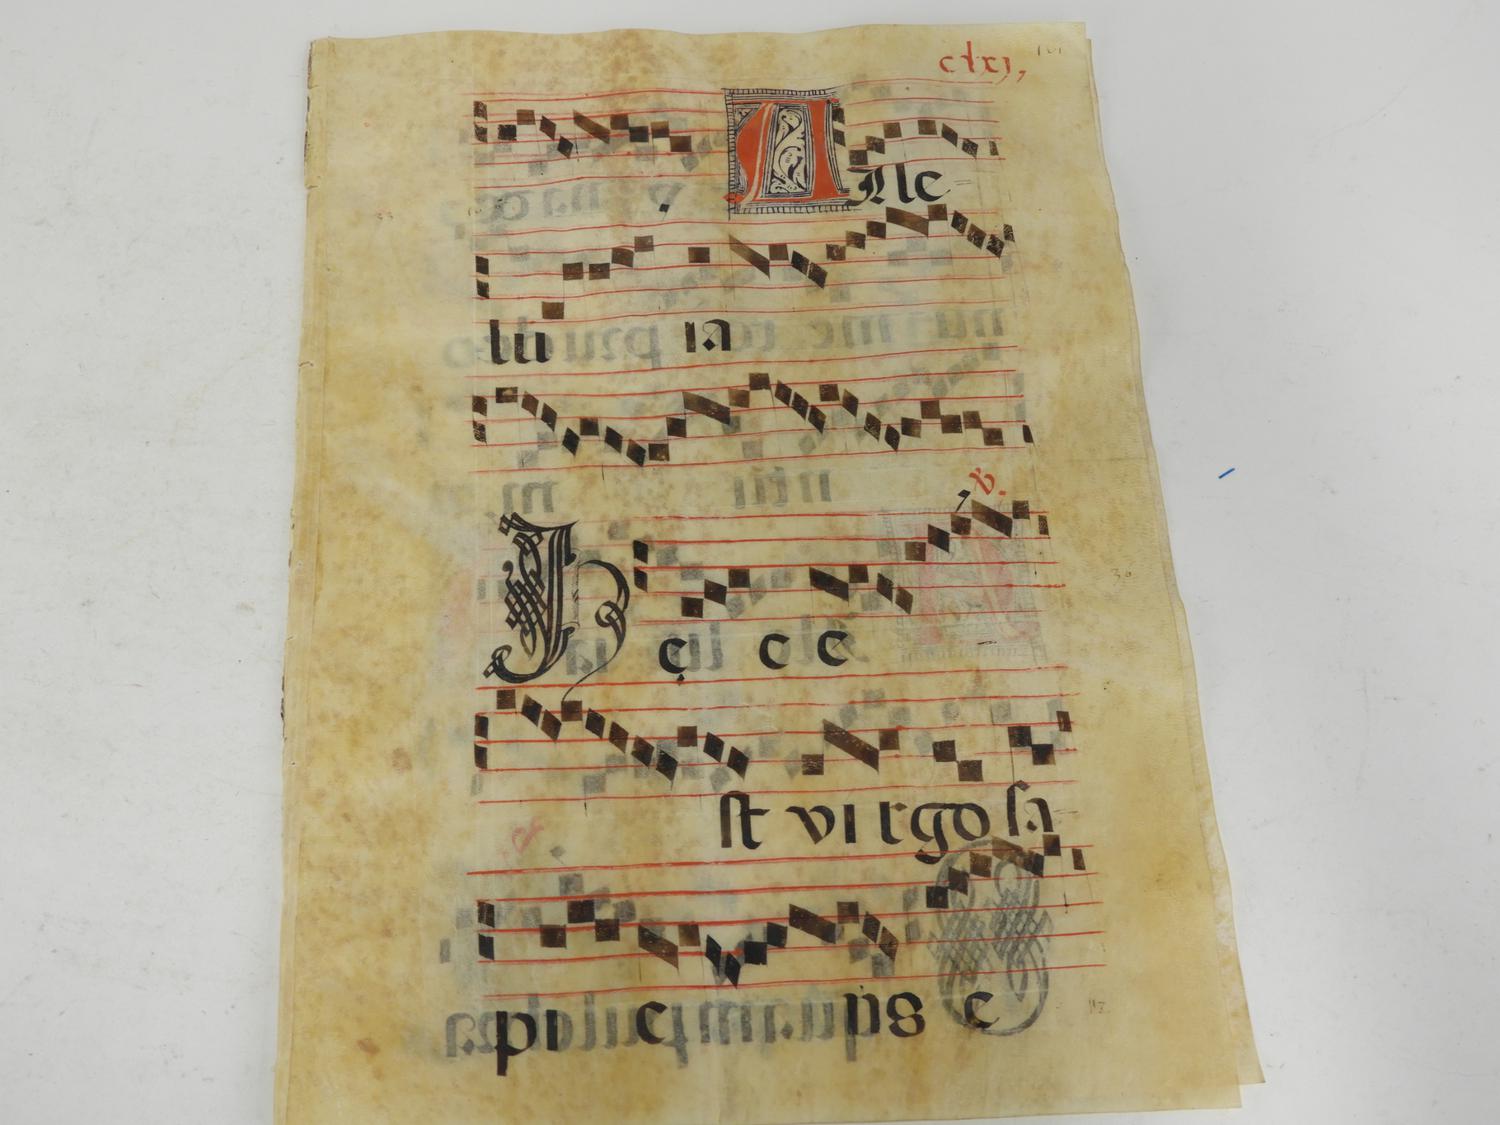 clxj,
Alle
lu ia
v.
Hęc e
st virgo sa
pi e ns e